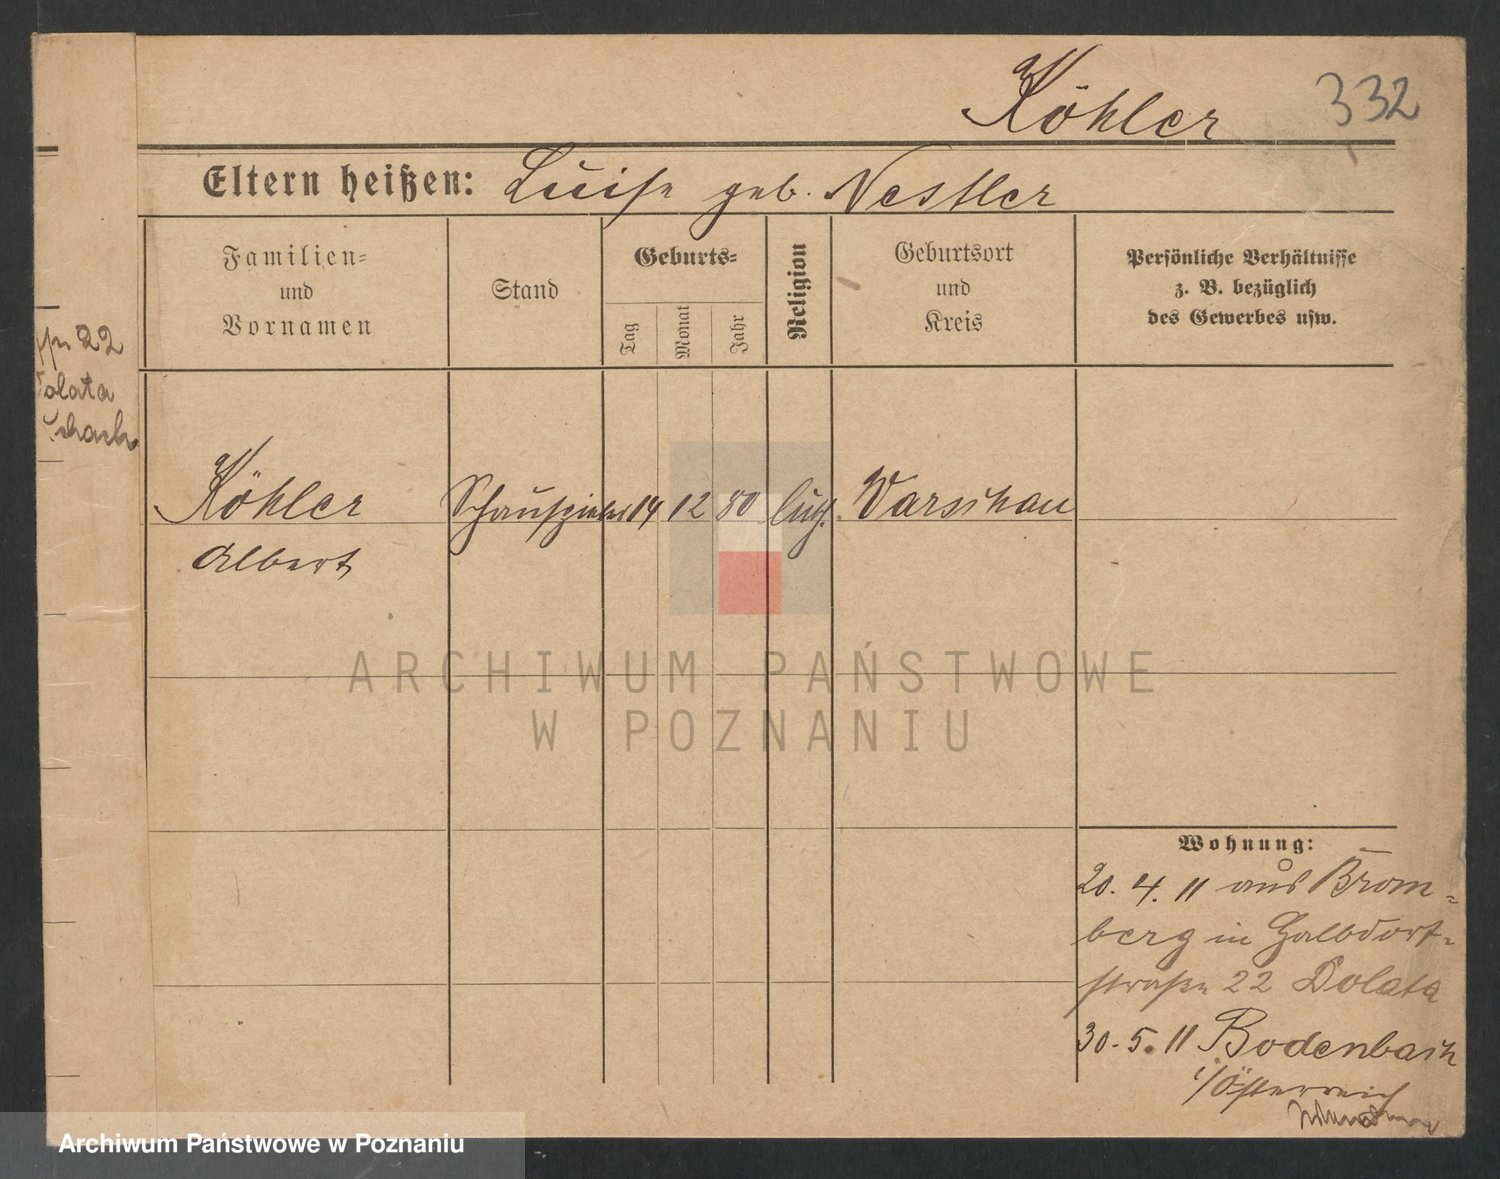 Köhler 332
Eltern heißen: Luise geb. Nestler
Familien=
und
Vornamen
Stand
Geburts=
Tag
Monat
Jahr
Religion
Geburtsort
und
Kreis
Persönliche Verhältnisse
z. B. bezüglich
des Gewerbes usw.
22
olata
Köhler Schauspieler 14 12 80 luth. Warschau
Albert
ARCHIWUM PAŃSTWOWE
W POZNANIU
Wohnung:
20. 4. 11 aus Brom=
berg in Halbdorf=
straße 22 Dolata
30. 5. 11 Bodenbach
i/Österreich
Archiwum Państwowe w Poznaniu